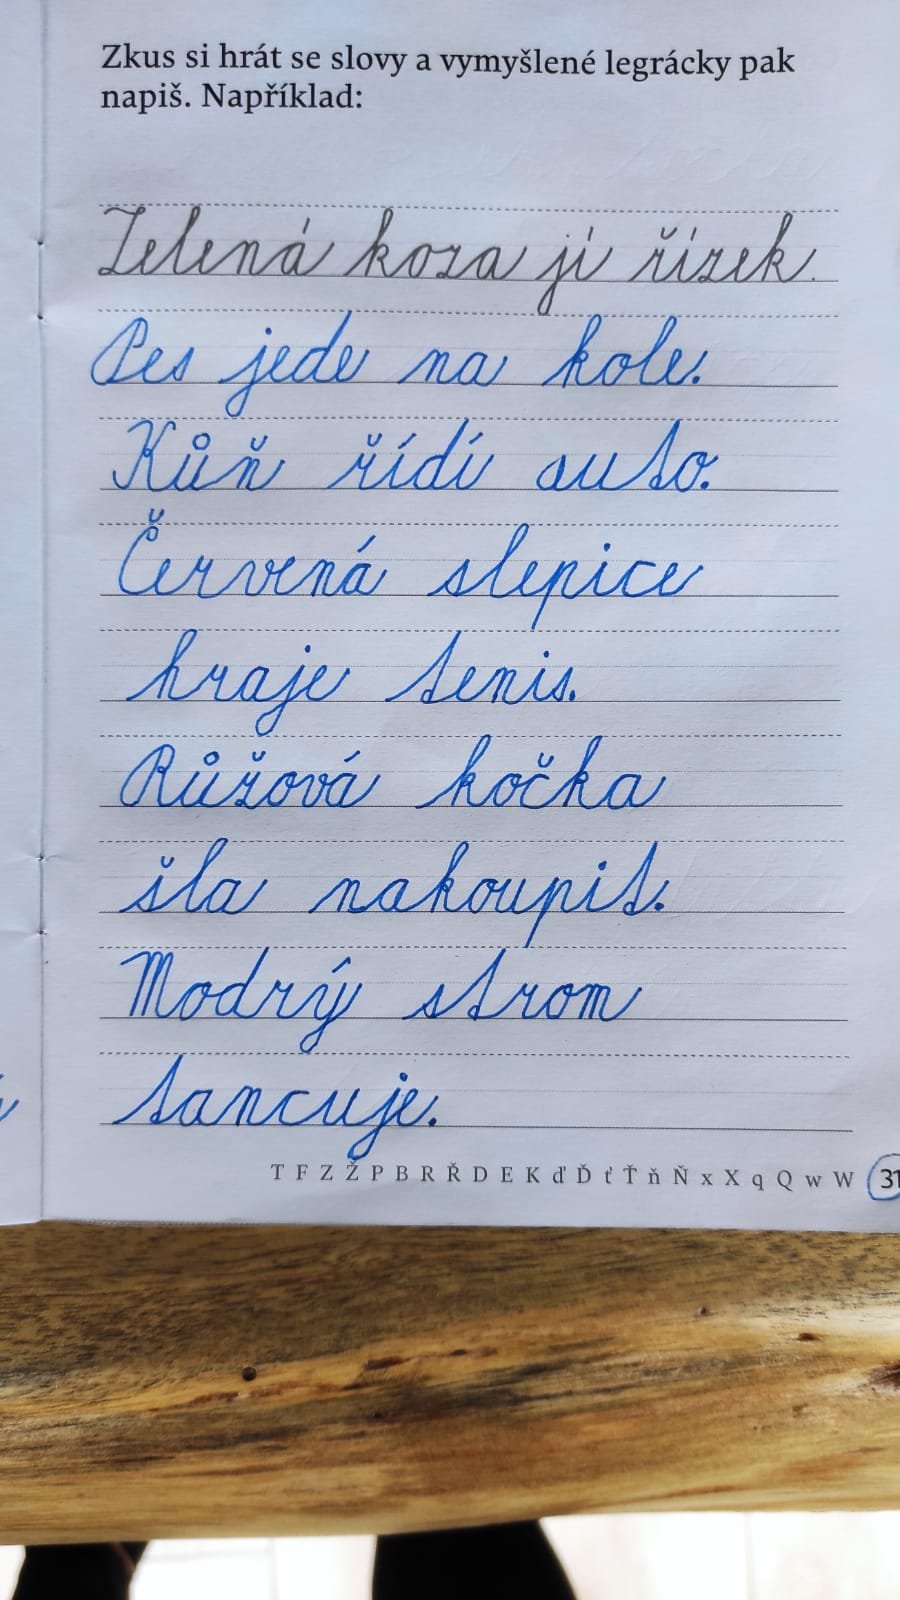 Zkus si hrát se slovy a vymyšlené legrácky pak
napiš. Například:
Zelená koza jí řízek.
Pes jede na kole.
Kůň řídí auto.
Červená slepice
hraje tenis.
Růžová kočka
šla nakoupit.
Modrý strom
tancuje.
T F Z Ž P B R Ř D E K ď Ď ť Ť ň Ň x X q Q w W 31